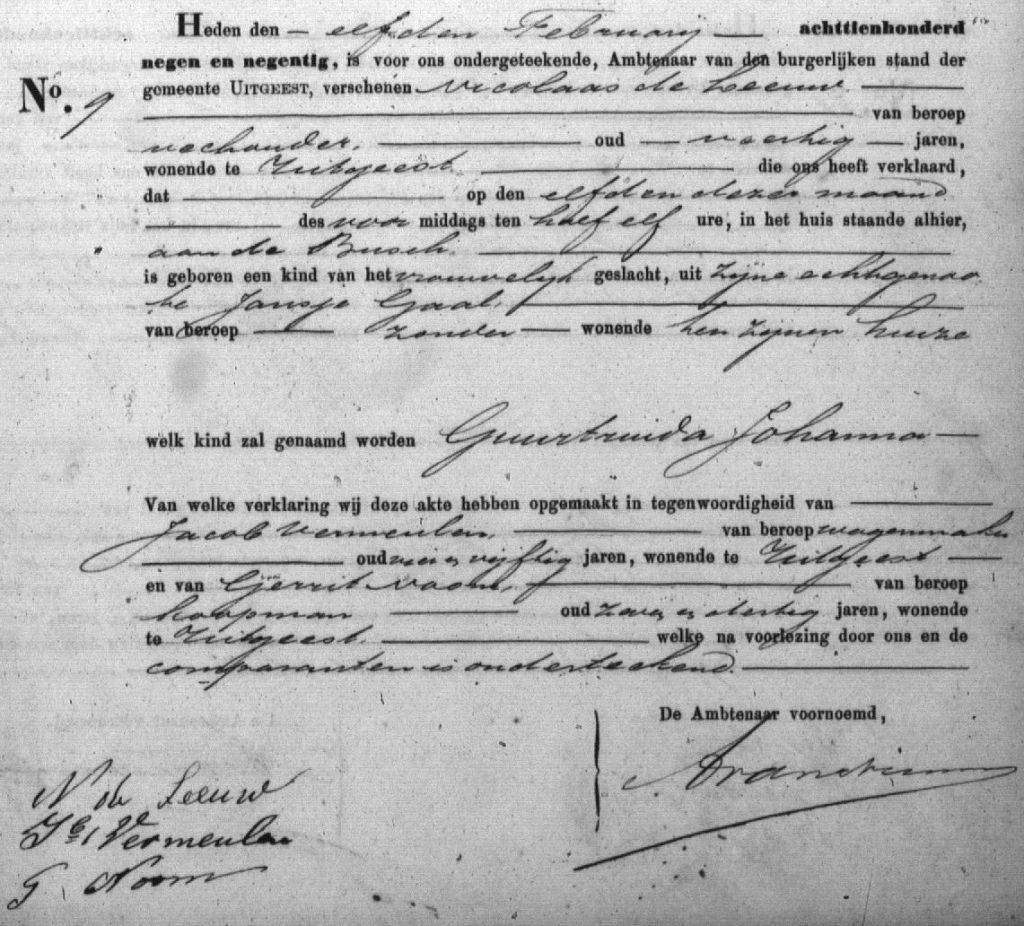 Heden den elfden Februarij achttienhonderd
negen en negentig, is voor ons ondergeteekende, Ambtenaar van den burgerlijken stand der
No. 9 gemeente UITGEEST, verschenen Nicolaas de Leeuw
van beroep
veehouder, oud veertig jaren,
wonende te Uitgeest, die ons heeft verklaard,
dat op den elfden dezer maand
des voor middags ten half elf ure, in het huis staande alhier,
aan de Busch,
is geboren een kind van het vrouwelijk geslacht, uit zijne echtgenoo
te Jansje Gaal,
van beroep zonder wonende ten zijnen huize
welk kind zal genaamd worden Guurtruida Johanna
Van welke verklaring wij deze akte hebben opgemaakt in tegenwoordigheid van
Jacob Vermeulen, van beroep wagenmaker
oud en vijftig jaren, wonende te Uitgeest
en van Gerrit Noom, van beroep
koopman oud zeven en dertig jaren, wonende
te Uitgeest, welke na voorlezing door ons en de
comparanten is onderteekend.
De Ambtenaar voornoemd,
N de Leeuw
Jb Vermeulen
G Noom